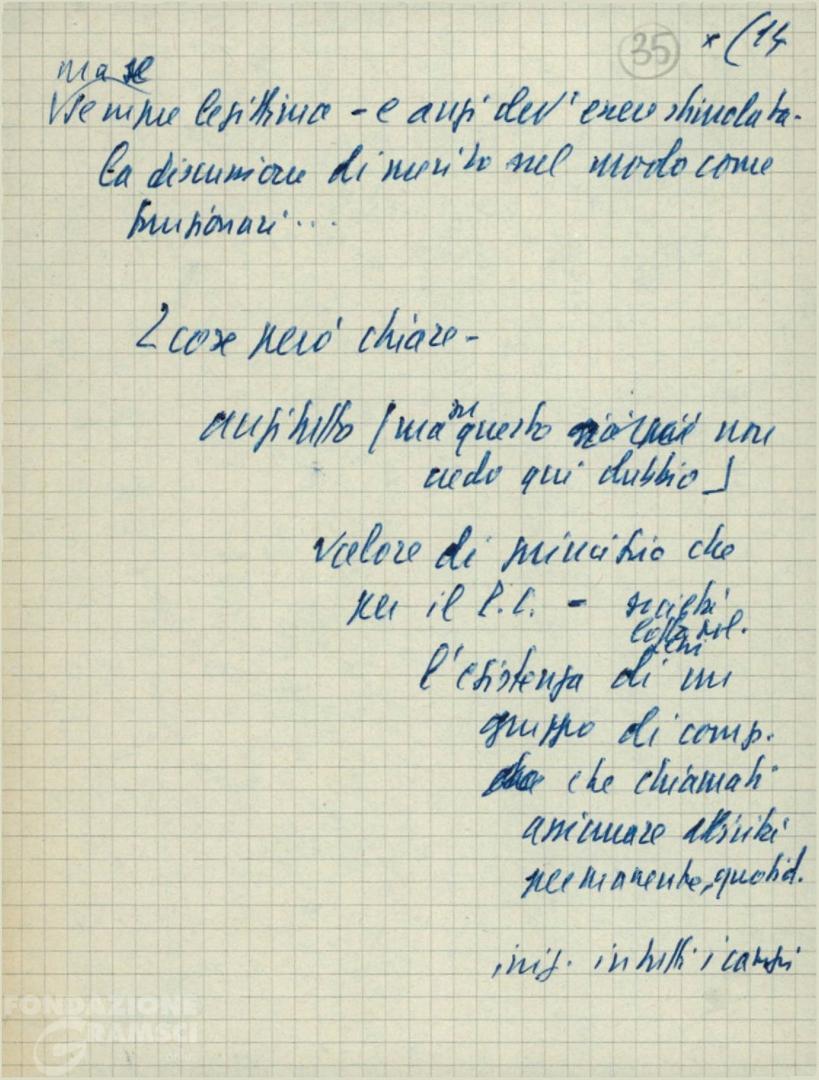 35 x (14
ma se
Sempre legittima - e anzi dev'essere stimolata -
la discussione di merito sul modo come
funzionari ...
2 cose però chiare -
anzitutto (ma su questo non
vedo qui dubbio)
valore di principio che
per il P.C. - società
l'esistenza di un
gruppo di comp.
che chiamati
assicurare attività
permanente, quotid.
iniz. in tutti i campi
FONDAZIONE
GRAMSCI